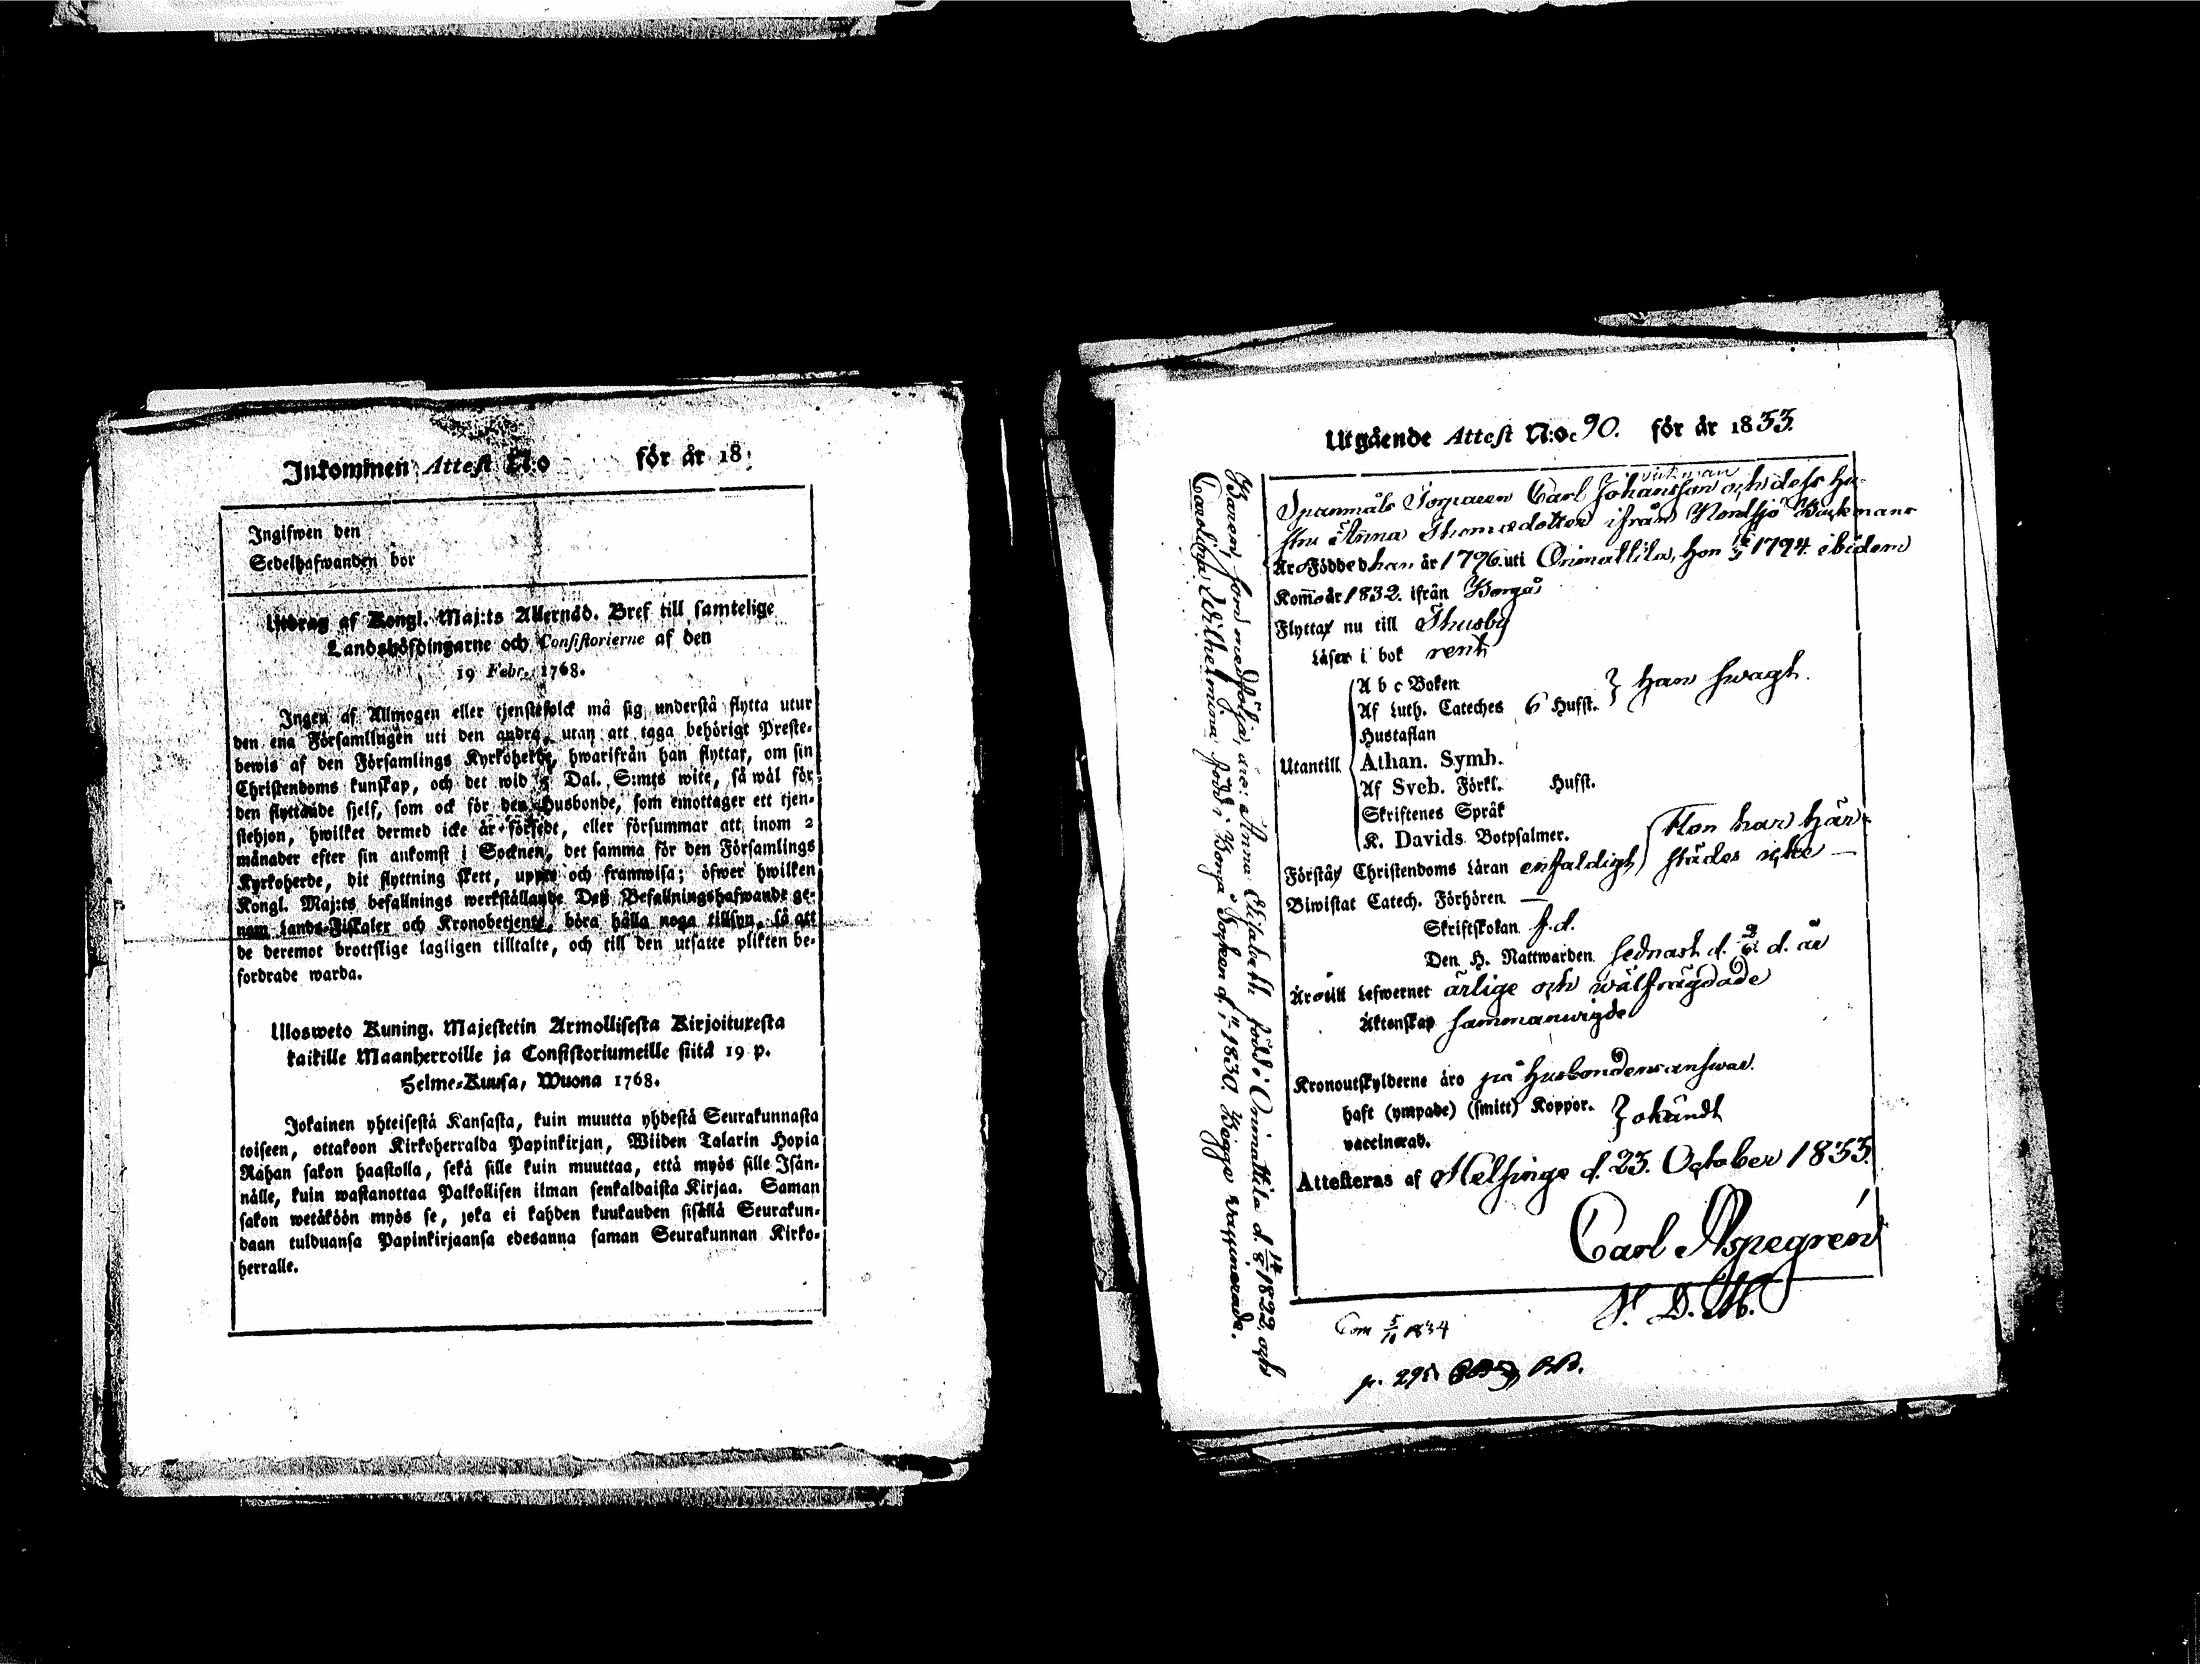 Inkommen Attest N:o för år 18
Ingifwen den
Sedelhafwanden bor
Utdrag af Kongl. Maj:ts Allernåd. Bref till samtelige
Landshöfdingarne och Consistorierne af den
19 Febr. 1768.
Ingen af Allmogen eller tjenstefolck må sig understå flytta utur
den ena Församlingen uti den andra, utan att taga behörigt Preste-
bewis af den Församlings Kyrkoherde, hwarifrån han flyttar, om sin
Christendoms kunskap, och det wid 5 Dal. S:mts wite, så wäl för
den flyttande sjelf, som ock för den Husbonde, som emottager ett tjen-
stehjon, hwilket dermed icke är försedt, eller försummar att inom 2
månader efter sin ankomst i Socknen, det samma för den Församlings
Kyrkoherde, dit flyttning skett, uppte och framwisa; öfwer hwilken
Kongl. Maj:ts befallnings werkställande Deß Befallningshafwande ge-
nom Lands-Fiskaler och Kronobetjente, böra hålla noga tillsyn, så att
de deremot brottslige lagligen tilltalte, och till den utsatte plikten be-
fordrade warda.
Ulosweto Kuning. Majestetin Armollisesta Kirjoituxesta
kaikille Maanherroille ja Consistoriumeille siitä 19 p.
Helme-Kuusa, Wuona 1768.
Jokainen yhteisestä Kansasta, kuin muutta yhdestä Seurakunnasta
toiseen, ottakoon Kirkoherralda Papinkirjan, Wiiden Talarin Hopia
Rahan sakon haastolla, sekä sille kuin muuttaa, että myös sille Isän-
nälle, kuin wastanottaa Palkollisen ilman senkaldaista Kirjaa. Saman
sakon wetäköön myös se, joka ei kahden kuukauden sisällä Seurakun-
daan tulduansa Papinkirjaansa edesanna saman Seurakunnan Kirko-
herralle.
Utgående Attest N:o 90. för år 1833.
Spanmåls Torparen Carl Johansson och dess Hu-
stru Anna Thomædotter ifrån Nordsjö Backmans
Äro Födde han år 1796 uti Orimattila, hon 16/5 1794 ibidem
Kom̄o år 1832. ifrån Borgå
Flytta nu till Thusby
Läser i bok rent
A b c Boken
Af Luth. Cateches 6 Hufst. } han swagt.
Hustaflan
Utantill Athan. Symb.
Af Sveb. Förkl. Hufst.
Skriftenes Språk
K. Davids Botpsalmer. Hon har här-
Förstå Christendoms Läran enfaldigt städes icke —
Biwistat Catech. Förhören —
Skriftskolan f.d.
Den H. Nattwarden sednast d. 2/6 d. år
Äro till Lefwernet ärlige och wälfrägdade
Äktenskap sammanwigde
Kronoutskylderne äro på Husbondens answar.
haft (ympade) (smitt) Koppor. } okändt
vaccinerad.
Attesteras af Helsinge d. 23. October 1833.
Carl Aspegrén
V. D. M.
Com 5/10 1834
p. 295
Barnen, som medfölja, äro: Anna Elisabeth född i Orimattila d. 14/8 1822, och
Carolina Wilhelmina född i Borgå Socken d. 1830. Begge vaccinerade.